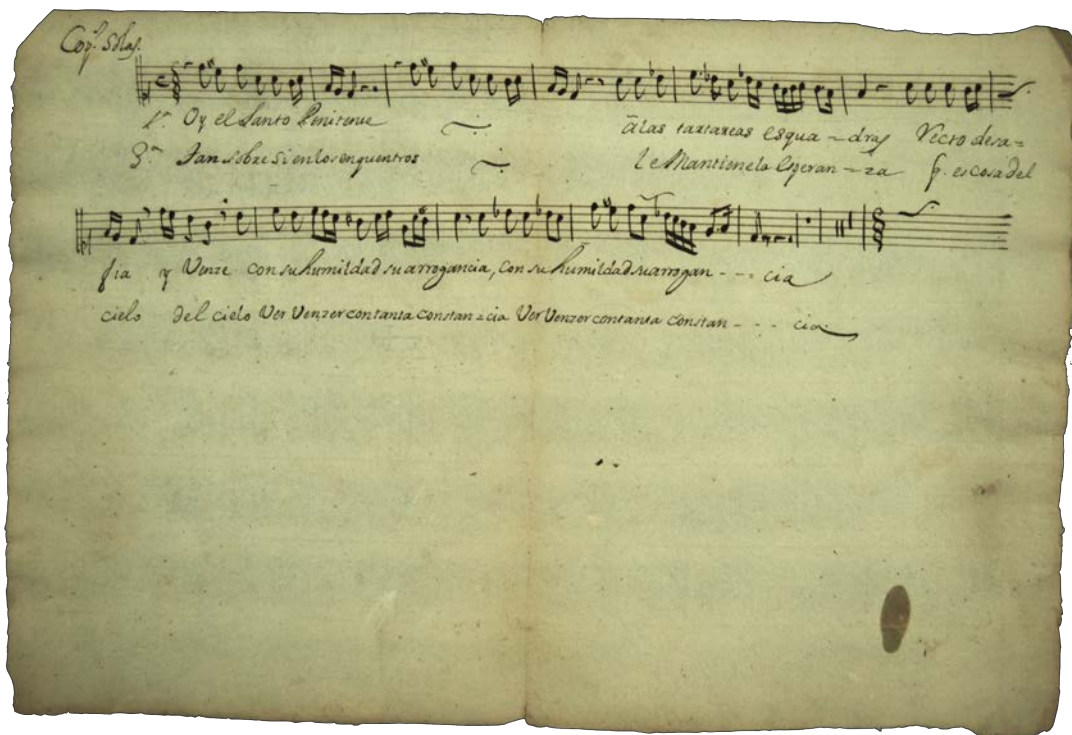 Cop.s Solas.
1.a Oy el Santo Penitente â las tartareas esqua = dras Recto desa=
3.a Tan sobre si en los enquentros le Mantiene la Esperan = za p. es cosa del
fia y Venze con su humildad su arrogancia, con su humildad su arrogan - - - cia
cielo del cielo Ver Venzer con tanta constan = cia Ver Venzer con tanta constan - - - cia